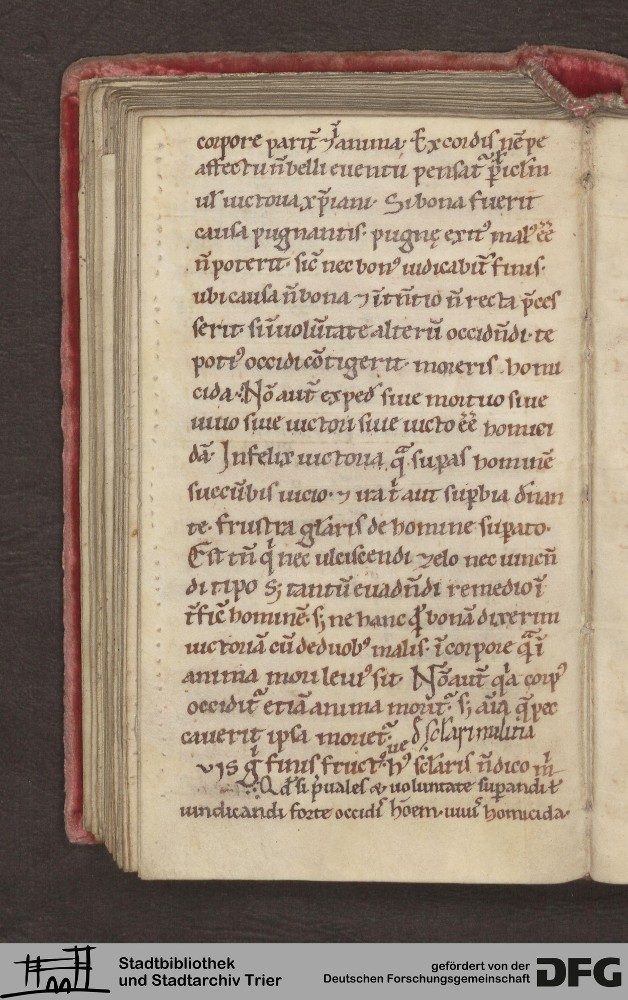 corpore parit̃ ⁊ i anima. Ex cordis nẽpe
affectu ñ belli euentu pensat᷑ p̱iclm̃
ul̃ uictoria xp̃iani. Si bona fuerit
causa pugnantis. pugnę exitꝰ malꝰ ẽẽ
ñ poterit. sic̃ nec bonꝰ iudicabit̃ finis.
ubi causa ñ bona ⁊ ĩtñtio ñ recta p̃ces
serit. si ĩ uolũtate alterũ occidñdi. te
potiꝰ occidi cõtigerit. moreris homi
cida. Nõ aut̃ exped̃ siue mortuo siue
uiuo siue uictori siue uicto ẽẽ homici
dã. Infelix uictoria, q̃ sup̱as hominẽ
succũbis uicio. ⁊ ira t̃ aut sup̱bia dñan
te. frustra gl̃aris de homine sup̱ato.
Est tñ qͥ nec ulciscendi zelo nec uincñ
di tipo s; tantũ euadñdi remedio ĩ
t̃fic̃ hominẽ. s; ne hanc qͥd̃ bonã dixerim
uictoriã cũ de duobꝰ malis. ĩ corpore q̃ ĩ
anima mori leuiꝰ sit. Nõ aut̃ qͥa corpꝰ
occidit᷑ etiã anima morit᷑. s; aĩa q̃ pec
cauerit ipsa moriet᷑. d̃ sclari militia
VIS gͥ finis fructꝰue hꝰ sclaris ñ dico mͥ
Qd̃ si p̃uales ⁊ uoluntate sup̱andi t̃
uindicandi forte occidis hõem. uiuis homicida.
Stadtbibliothek
und Stadtarchiv Trier
gefördert von der
Deutschen Forschungsgemeinschaft
DFG